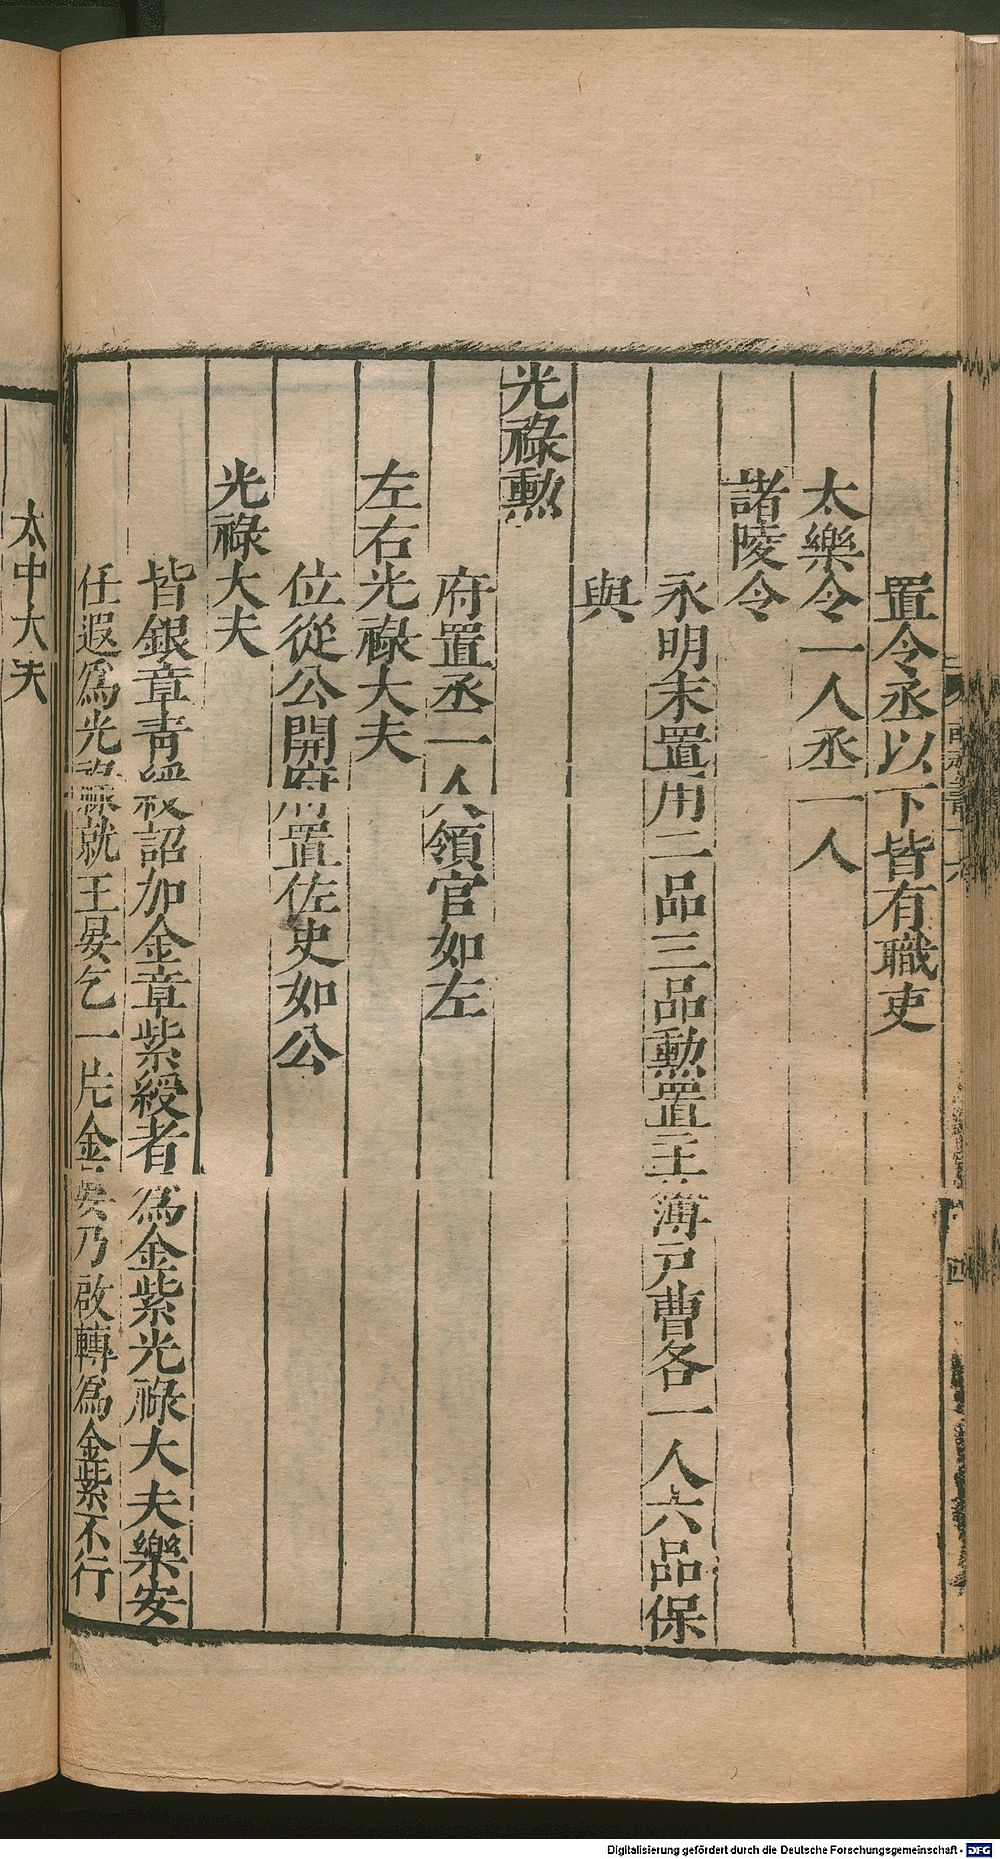 置令丞以下皆有職吏
太樂令一人丞一人
諸陵令
永明末置用二品三品勲置主簿戸曹各一人六品保
與
光祿勲
府置丞一人領官如左
左右光祿大夫
位從公開府置佐史如公
光祿大夫
皆銀章青綬詔加金章紫綬者爲金紫光祿大夫樂安
任遐爲光祿就王晏乞一片金晏乃啟轉爲金紫不行
太中大夫
Digitalisierung gefördert durch die Deutsche Forschungsgemeinschaft - DFG